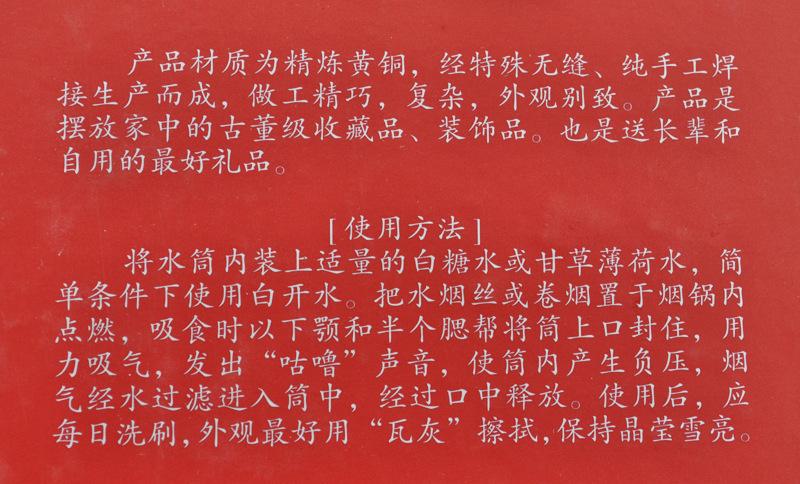 产品材质为精炼黄铜，经特殊无缝、纯手工焊
接生产而成，做工精巧，复杂，外观别致。产品是
摆放家中的古董级收藏品、装饰品。也是送长辈和
自用的最好礼品。
[使用方法]
将水筒内装上适量的白糖水或甘草薄荷水，简
单条件下使用白开水。把水烟丝或卷烟置于烟锅内
点燃，吸食时以下颚和半个腮帮将筒上口封住，用
力吸气，发出“咕噜”声音，使筒内产生负压，烟
气经水过滤进入筒中，经过口中释放。使用后，应
每日洗刷，外观最好用“瓦灰”擦拭，保持晶莹雪亮。